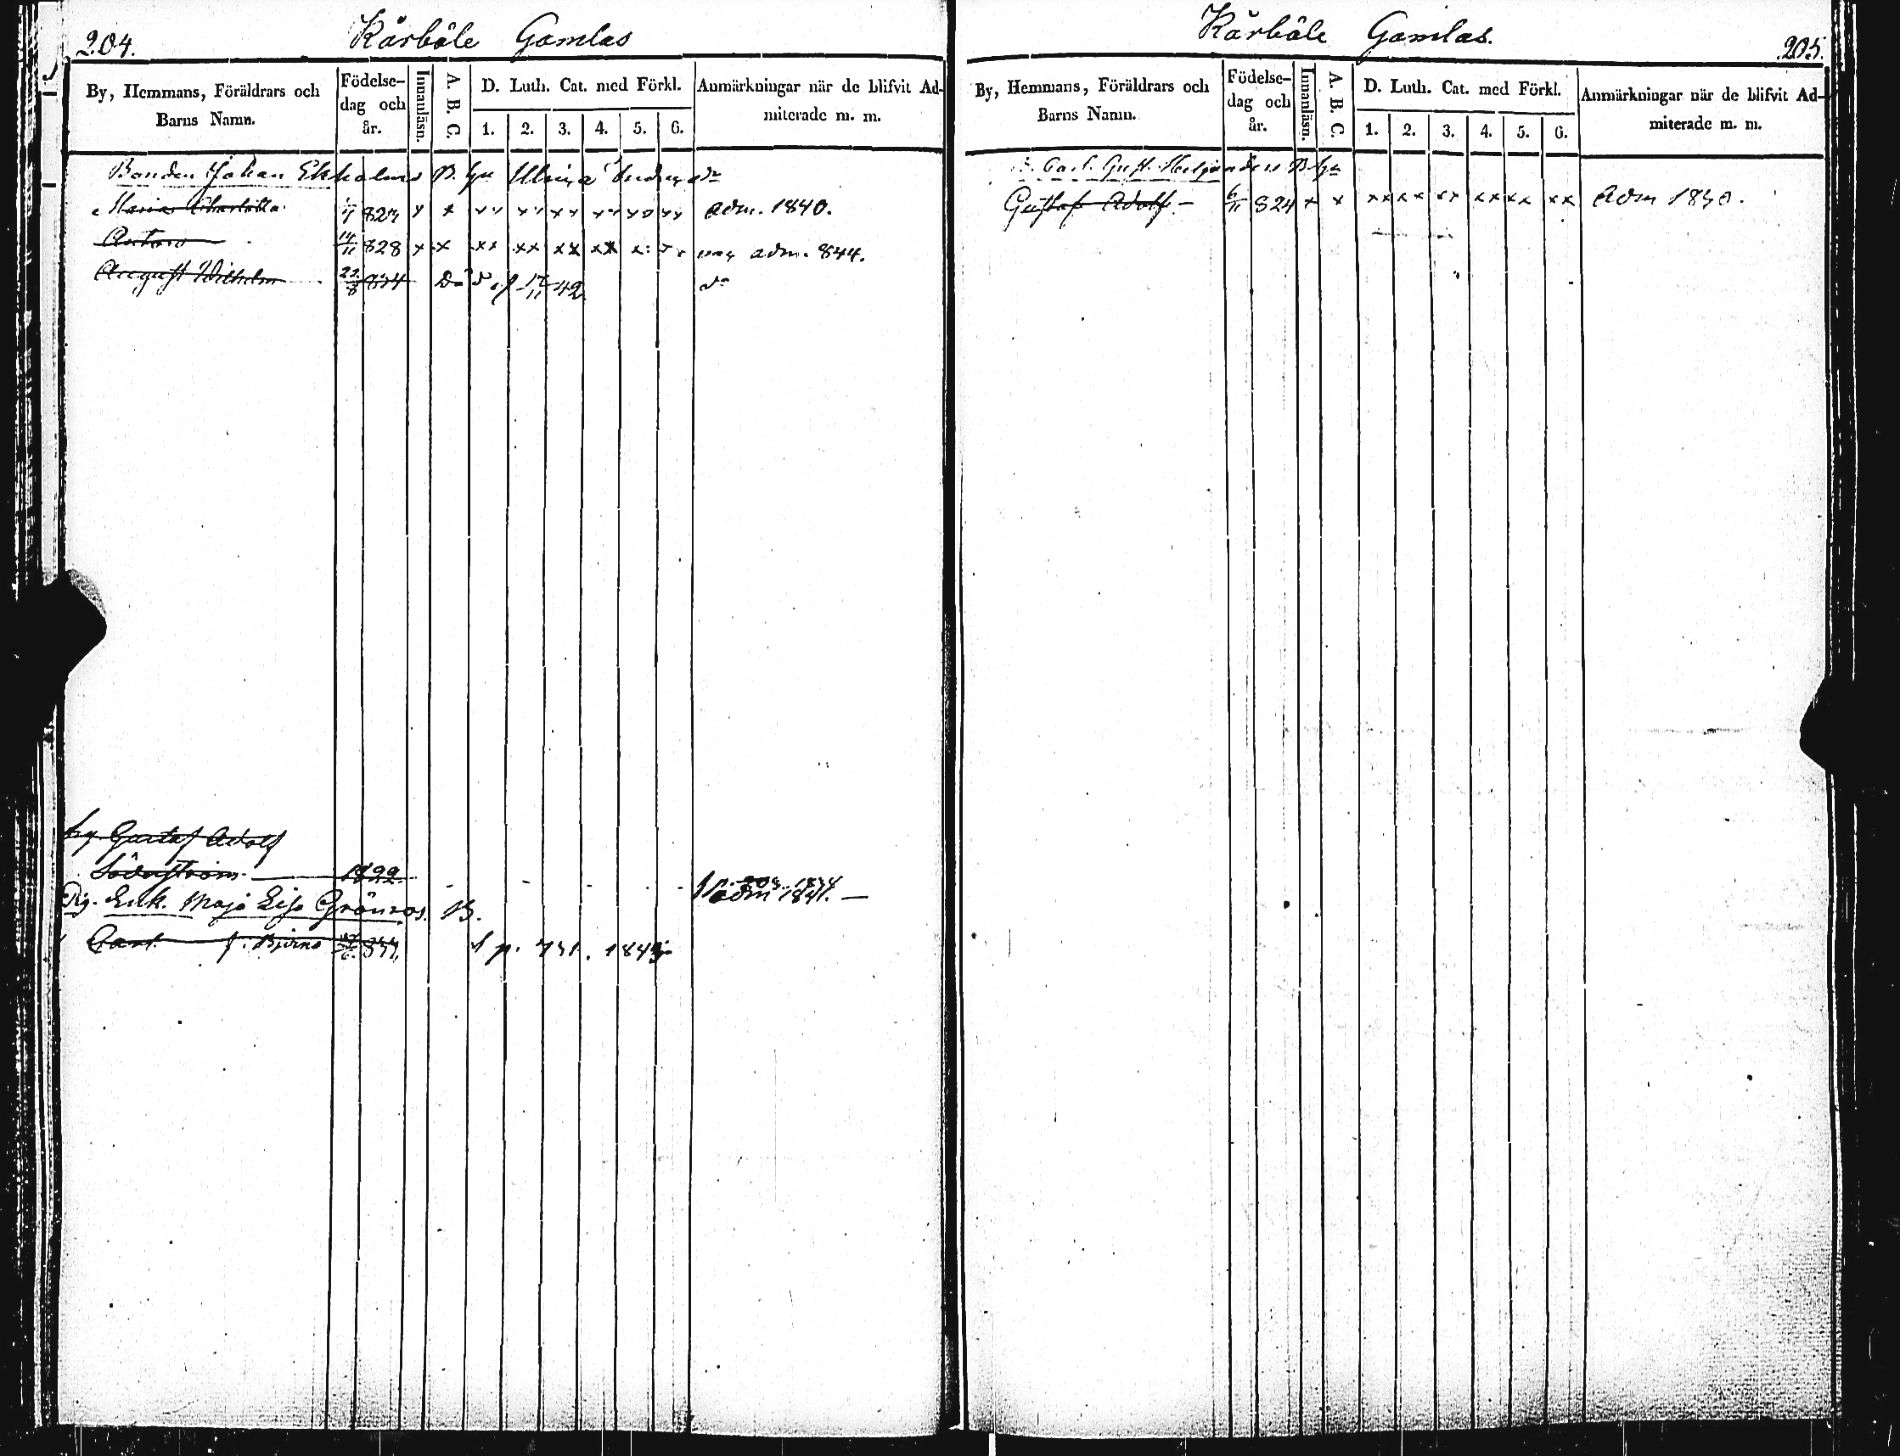 204.
Kårböle Gamlas
By, Hemmans, Föräldrars och Barns Namn.
Födelse-dag och år.
Innanläsn.
A. B. C.
D. Luth. Cat. med Förkl.
1. 2. 3. 4. 5. 6.
Anmärkningar när de blifvit Admiterade m. m.
Bonden Johan Ekholms B.
Maria Charlotta x x adm. 1840.
14/11 828 x x xx xx xx xx adm. 844.
August Wilhelm 22/8 834 17/11 42
Gustaf Adolf
Söderström 1822 adm 1841.
Enk. Maja Lisa Grönros. B.
Carl 1845
Kårböle Gamlas.
205.
By, Hemmans, Föräldrars och Barns Namn.
Födelse-dag och år.
Innanläsn.
A. B. C.
D. Luth. Cat. med Förkl.
1. 2. 3. 4. 5. 6.
Anmärkningar när de blifvit Admiterade m. m.
Carl Gust.
Gustaf Adolf. 6/11 824 x x xx xx xx xx xx xx Adm 1840.